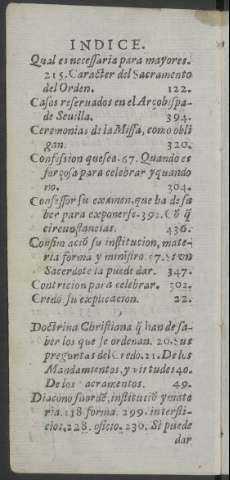 INDICE.
Qual es necessaria para mayores.
215. Caracter del Sacramento
del Orden. 122.
Casos reseruados en el Arçobispa-
do de Seuilla. 394.
Ceremonias de la Missa, como obli
gan. 320.
Confession que sea. 67. Quando es
forçosa para celebrar y quando
no. 304.
Confessor su examen, que ha de sa
ber para exponerse. 392. Cõ q̃
circunstancias. 436.
Confirmacio su institucion, mate-
ria forma y ministro 67. Si vn
Sacerdote la puede dar. 347.
Contricion para celebrar. 302.
Credo su explicacion. 22.
D
Doctrina Christiana q̃ han de sa-
ber los que se ordenan. 20. Sus
preguntas del Credo. 21. De los
Mandamientos, y virtudes 40.
De los acramentos. 49.
Diacono su ordẽ, instituciõ y mate
ria. 218 forma. 299. intersti-
cios. 228. oficio. 230. Si puede
dar